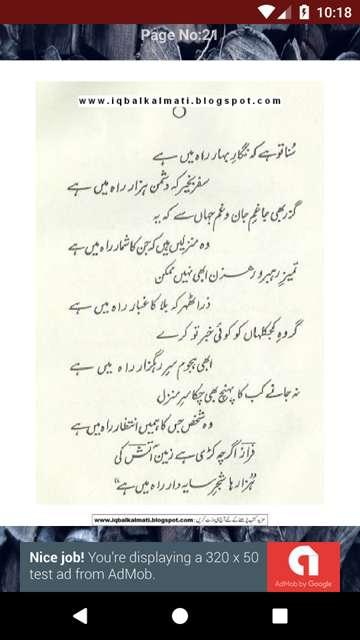 10:18
Page No:21
www.iqbalkalmati.blogspot.com
سُنا تو ہے کہ نگارِ بہار راہ میں ہے
سفر بخیر کہ دشمن ہزار راہ میں ہے
گزر بھی جا غمِ جان و غمِ جہاں سے کہ یہ
وہ منزلیں ہیں کہ جن کا شمار راہ میں ہے
تمیزِ رہبر و رہزن ابھی نہیں ممکن
ذرا ٹھہر کہ بلا کا غبار راہ میں ہے
گروہِ کجکلہاں کو کوئی خبر تو کرے
ابھی ہجوم سرِ رہگزار راہ میں ہے
نہ جانے کب کا پہنچ بھی چکا سرِ منزل
وہ شخص جس کا ہمیں انتظار راہ میں ہے
فراز اگرچہ کڑی ہے زمین آتش کی
"ہزار ہا شجرِ سایہ دار راہ میں ہے"
www.iqbalkalmati.blogspot.com
Nice job! You're displaying a 320 x 50
test ad from AdMob.
AdMob by Google